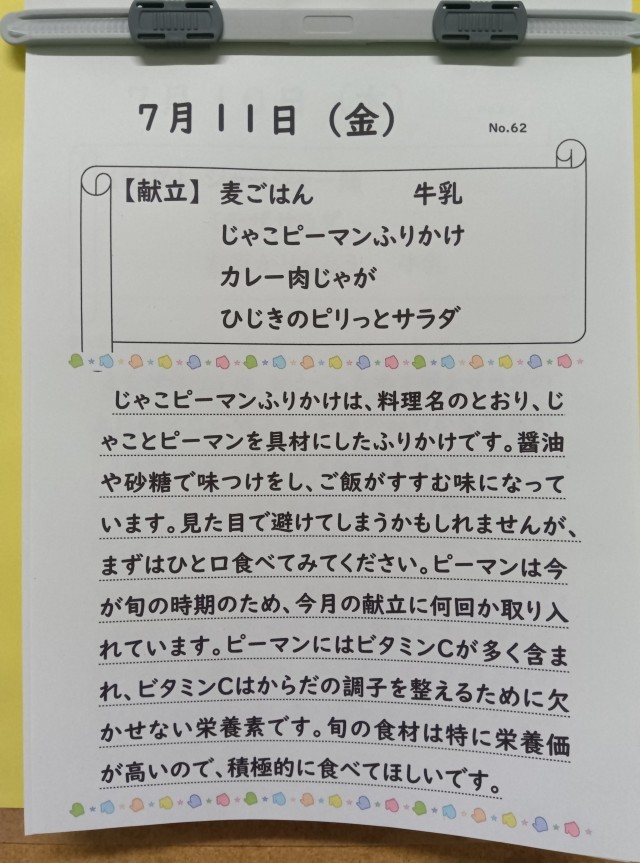 7月11日（金）
No.62
【献立】 麦ごはん 牛乳
じゃこピーマンふりかけ
カレー肉じゃが
ひじきのピリっとサラダ
じゃこピーマンふりかけは、料理名のとおり、じ
ゃことピーマンを具材にしたふりかけです。醤油
や砂糖で味つけをし、ご飯がすすむ味になって
います。見た目で避けてしまうかもしれませんが、
まずはひと口食べてみてください。ピーマンは今
が旬の時期のため、今月の献立に何回か取り入
れています。ピーマンにはビタミンCが多く含ま
れ、ビタミンCはからだの調子を整えるために欠
かせない栄養素です。旬の食材は特に栄養価
が高いので、積極的に食べてほしいです。